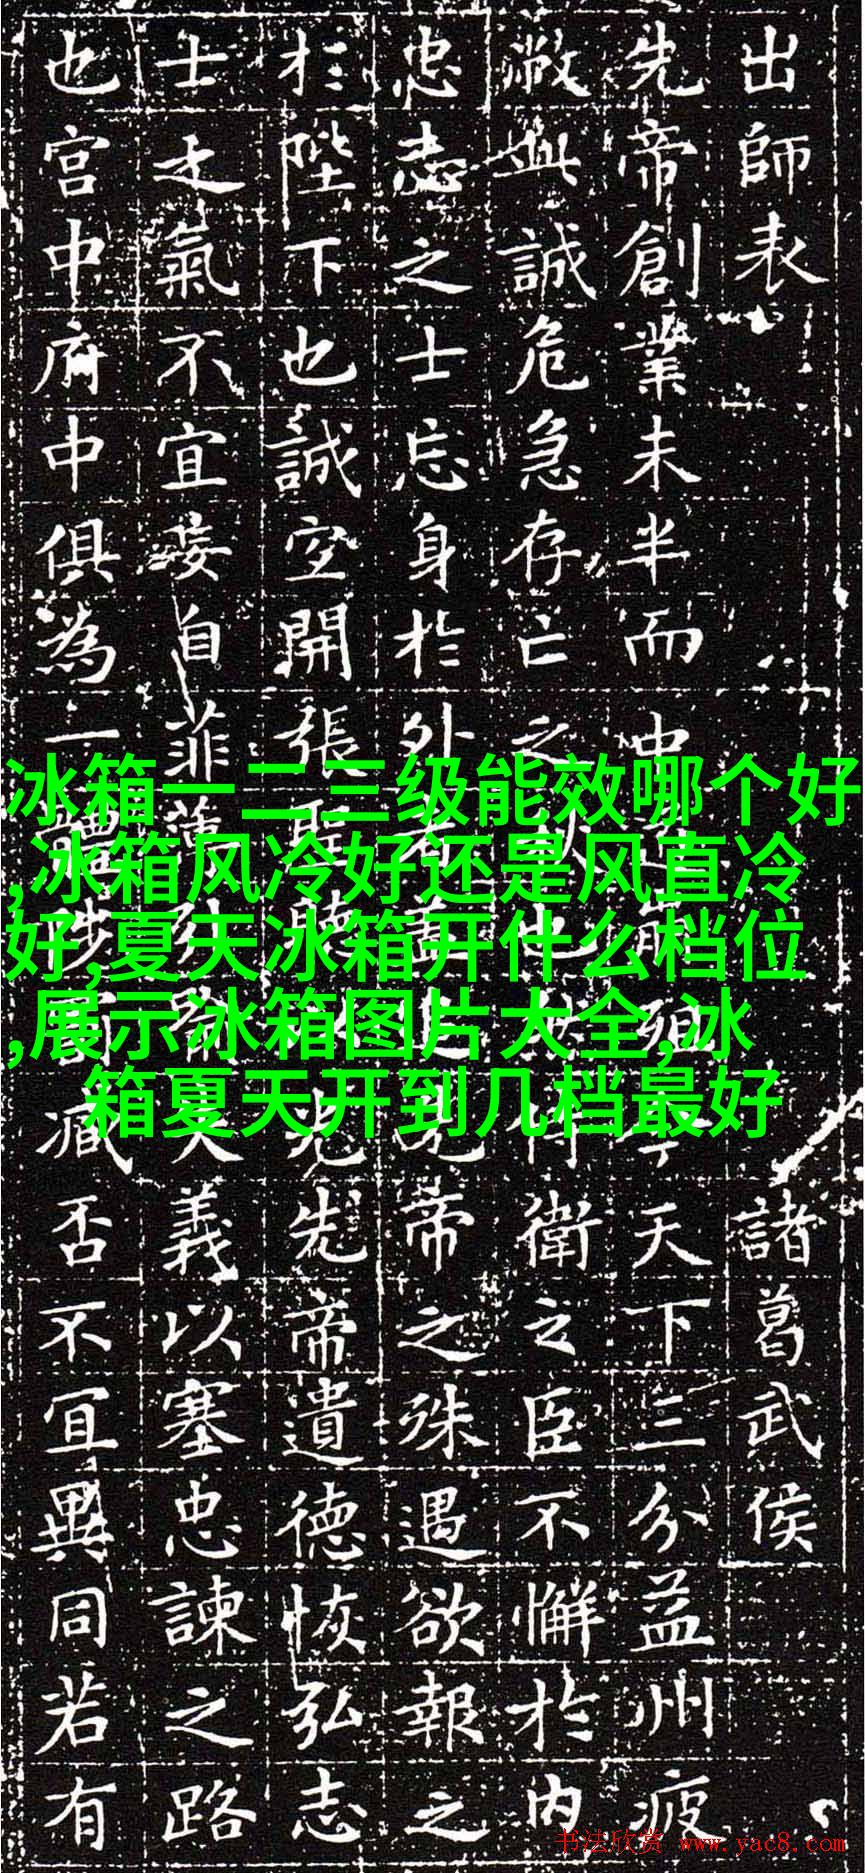 出師表 諸葛武侯
先帝創業未半而中道崩殂今天下三分益州疲
敝此誠危急存亡之秋也然侍衛之臣不懈於内
忠志之士忘身於外者蓋追先帝之殊遇欲報之
於陛下也誠宜開張聖聽以光先帝遺德恢弘志
士之氣不宜妄自菲薄引喻失義以塞忠諫之路
也宮中府中俱為一體陟罰臧否不宜異同若有
冰箱一二三级能效哪个好
,冰箱风冷好还是风直冷
好,夏天冰箱开什么档位
,展示冰箱图片大全,冰
箱夏天开到几档最好
书法欣赏 www.yac8.com